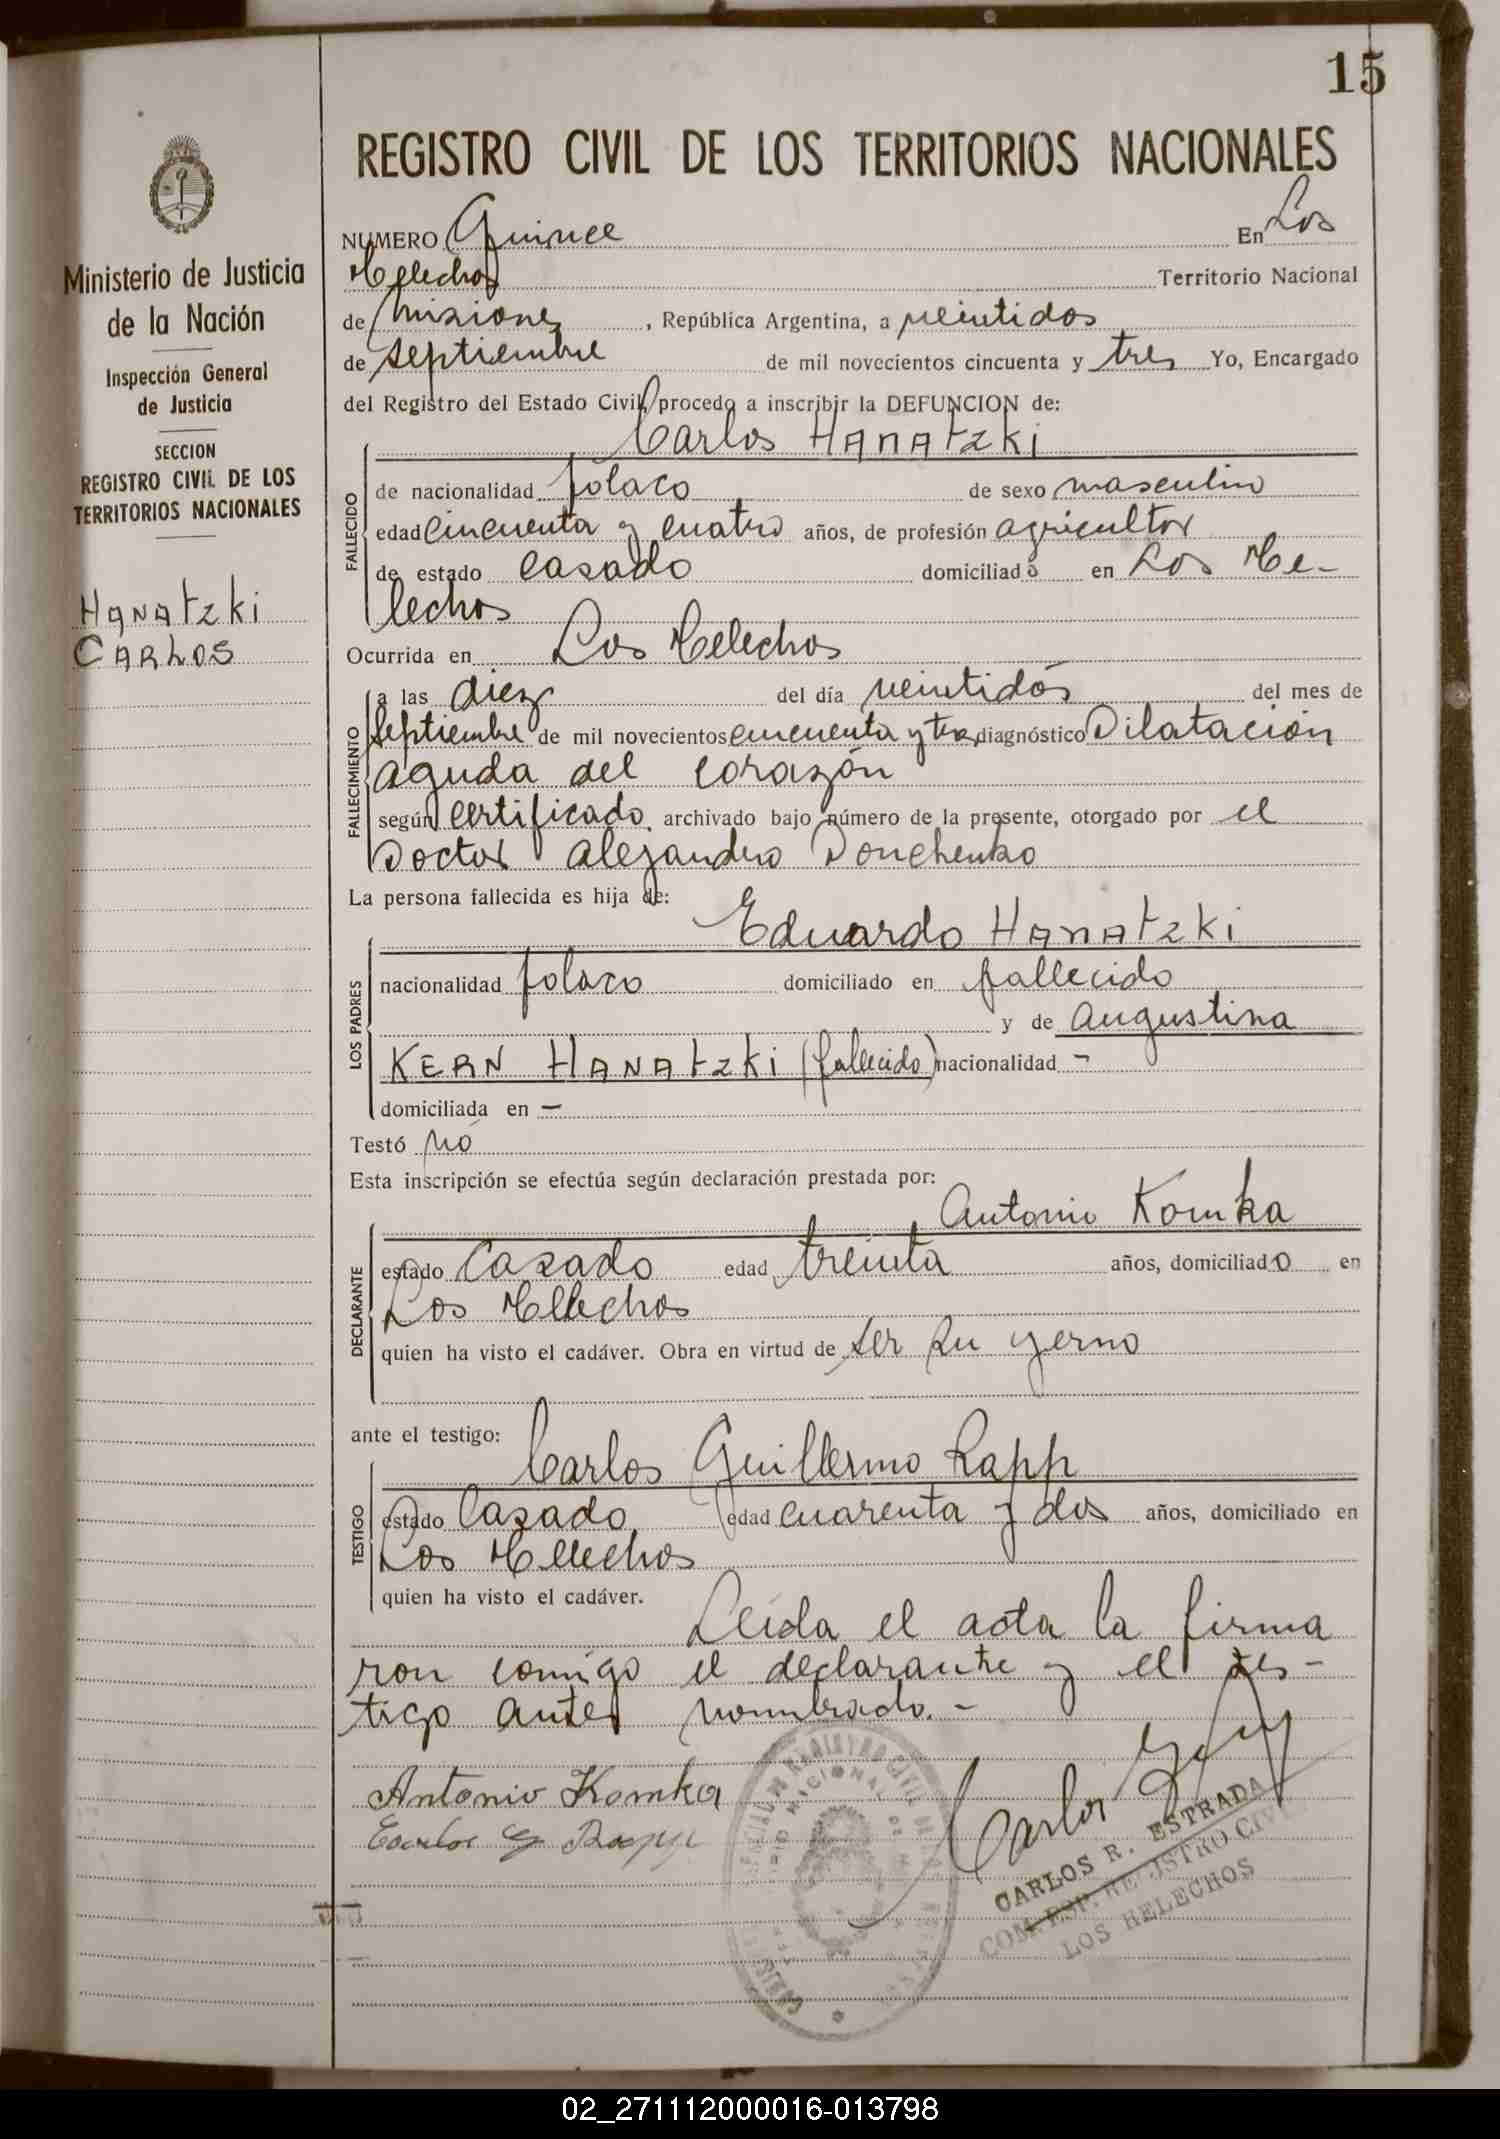 15
REGISTRO CIVIL DE LOS TERRITORIOS NACIONALES
Ministerio de Justicia
de la Nación
Inspección General
de Justicia
SECCION
REGISTRO CIVIL DE LOS
TERRITORIOS NACIONALES
HANATZKI
CARLOS
NUMERO Quince En Los
Helechos Territorio Nacional
de Misiones, República Argentina, a veintidos
de septiembre de mil novecientos cincuenta y tres Yo, Encargado
del Registro del Estado Civil, procedo a inscribir la DEFUNCION de:
Carlos HANATZKI
FALLECIDO
de nacionalidad polaco de sexo masculino
edad cincuenta y cuatro años, de profesión agricultor
de estado casado domiciliado en Los He-
lechos
Ocurrida en Los Helechos
FALLECIMIENTO
a las diez del día veintidós del mes de
septiembre de mil novecientos cincuenta y tres, diagnóstico Dilatación
aguda del corazón
según certificado, archivado bajo número de la presente, otorgado por el
Doctor Alejandro Donchenko
La persona fallecida es hija de:
Eduardo HANATZKI
LOS PADRES
nacionalidad polaco domiciliado en fallecido
y de Augustina
KERN HANATZKI (fallecido) nacionalidad -
domiciliada en -
Testó no
Esta inscripción se efectúa según declaración prestada por:
Antonio Komka
DECLARANTE
estado Casado edad treinta años, domiciliado en
Los Helechos
quien ha visto el cadáver. Obra en virtud de ser su yerno
ante el testigo:
Carlos Guillermo Rapp
TESTIGO
estado Casado edad cuarenta y dos años, domiciliado en
Los Helechos
quien ha visto el cadáver.
Leida el acta la firma
ron comigo el declarante y el tes-
tigo antes nombrado.-
Antonio Komka
Carlos G Rapp
Carlos
CARLOS R. ESTRADA
COM. ESP. REGISTRO CIVIL
LOS HELECHOS
02_271112000016-013798